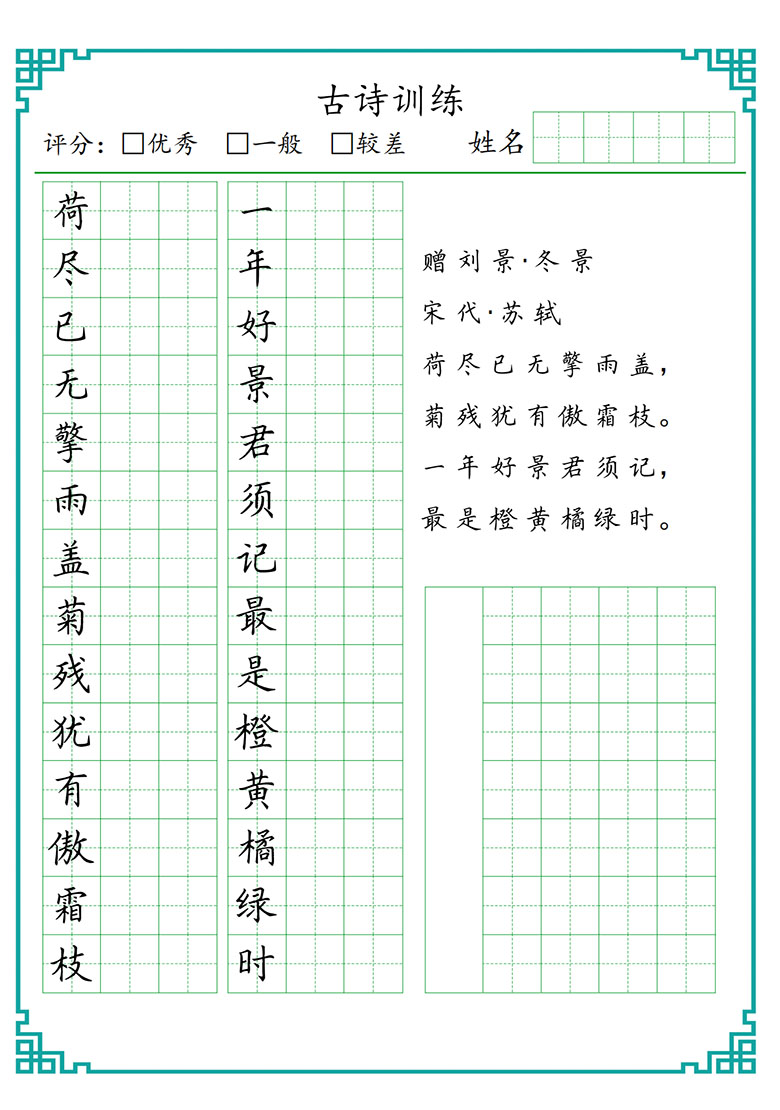 古诗训练
评分：□优秀 □一般 □较差 姓名
荷尽已无擎雨盖菊残犹有傲霜枝
一年好景君须记最是橙黄橘绿时
赠刘景·冬景
宋代·苏轼
荷尽已无擎雨盖，
菊残犹有傲霜枝。
一年好景君须记，
最是橙黄橘绿时。